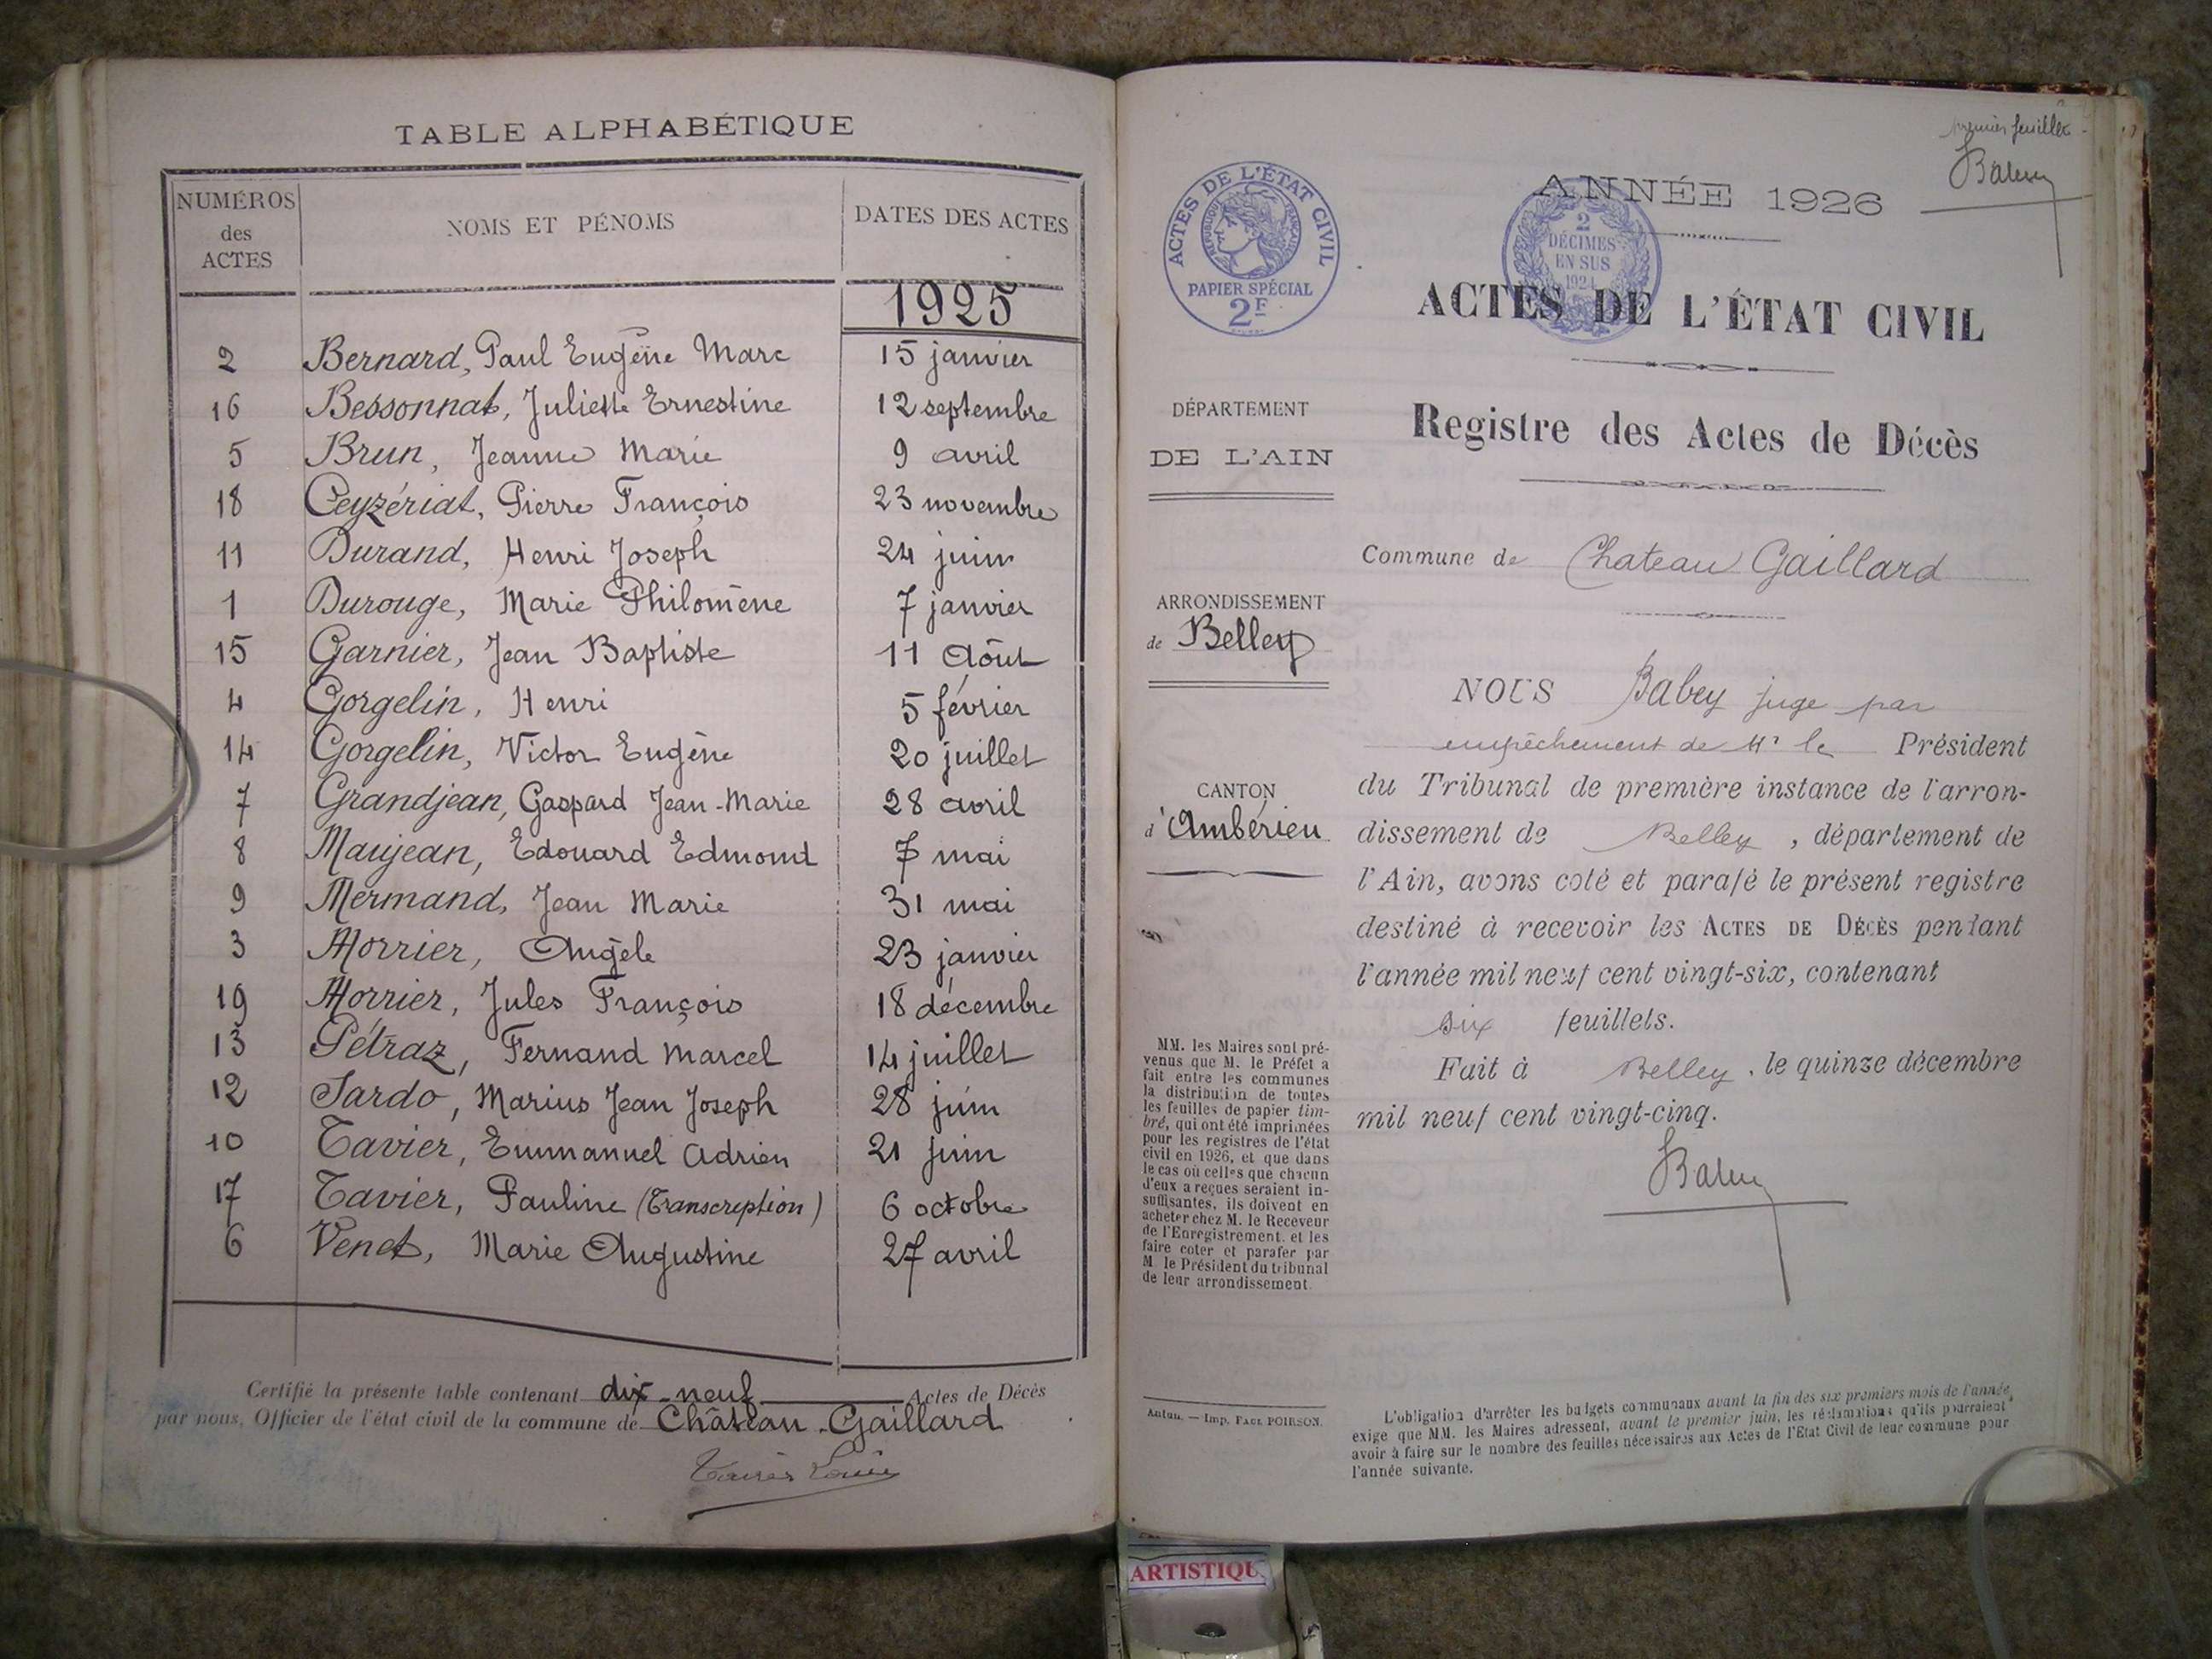 TABLE ALPHABÉTIQUE
NUMÉROS des ACTES
NOMS ET PÉNOMS
DATES DES ACTES
1925
2 Bernard, Paul Eugène Marc 15 janvier
16 Bessonnat, Juliette Ernestine 12 septembre
5 Brun, Jeanne Marie 9 avril
18 Ceyzériat, Pierre François 23 novembre
11 Durand, Henri Joseph 24 juin
1 Durouge, Marie Philomène 7 janvier
15 Garnier, Jean Baptiste 11 Août
4 Gorgelin, Henri 5 février
14 Gorgelin, Victor Eugène 20 juillet
7 Grandjean, Gaspard Jean-Marie 28 avril
8 Maujean, Edouard Edmond 7 mai
9 Mermand, Jean Marie 31 mai
3 Morrier, Angèle 23 janvier
19 Morrier, Jules François 18 décembre
13 Pétraz, Fernand Marcel 14 juillet
12 Sardo, Marius Jean Joseph 28 juin
10 Tavier, Emmanuel Adrien 21 juin
17 Tavier, Pauline (Transcription) 6 octobre
6 Venet, Marie Augustine 27 avril
Certifié la présente table contenant dix-neuf Actes de Décès
par nous, Officier de l'état civil de la commune de Château-Gaillard
premier feuillet
Babey
ACTES DE L'ÉTAT CIVIL
RÉPUBLIQUE FRANÇAISE
PAPIER SPÉCIAL
2F
2
DÉCIMES
EN SUS
1924
ANNÉE 1926
ACTES DE L'ÉTAT CIVIL
Registre des Actes de Décès
DÉPARTEMENT
DE L'AIN
ARRONDISSEMENT
de Belley
CANTON
d'Ambérieu
MM. les Maires sont pré-
venus que M. le Préfet a
fait entre les communes
la distribution de toutes
les feuilles de papier tim-
bré, qui ont été imprimées
pour les registres de l'état
civil en 1926, et que dans
le cas où celles que chacun
d'eux a reçues seraient in-
suffisantes, ils doivent en
acheter chez M. le Receveur
de l'Enregistrement. et les
faire coter et parafer par
M. le Président du tribunal
de leur arrondissement.
Autun. — Imp. PAUL POIRSON.
Commune de Chateau Gaillard
NOUS Babey juge par
empêchement de Mr le Président
du Tribunal de première instance de l'arron-
dissement de Belley, département de
l'Ain, avons coté et parafé le présent registre
destiné à recevoir les ACTES DE DÉCÈS pendant
l'année mil neuf cent vingt-six, contenant
six feuillets.
Fait à Belley, le quinze décembre
mil neuf cent vingt-cinq.
Babey
L'obligation d'arrêter les budgets communaux avant la fin des six premiers mois de l'année,
exige que MM. les Maires adressent, avant le premier juin, les réclamations qu'ils pourraient
avoir à faire sur le nombre des feuilles nécessaires aux Actes de l'Etat Civil de leur commune pour
l'année suivante.
ARTISTIQU